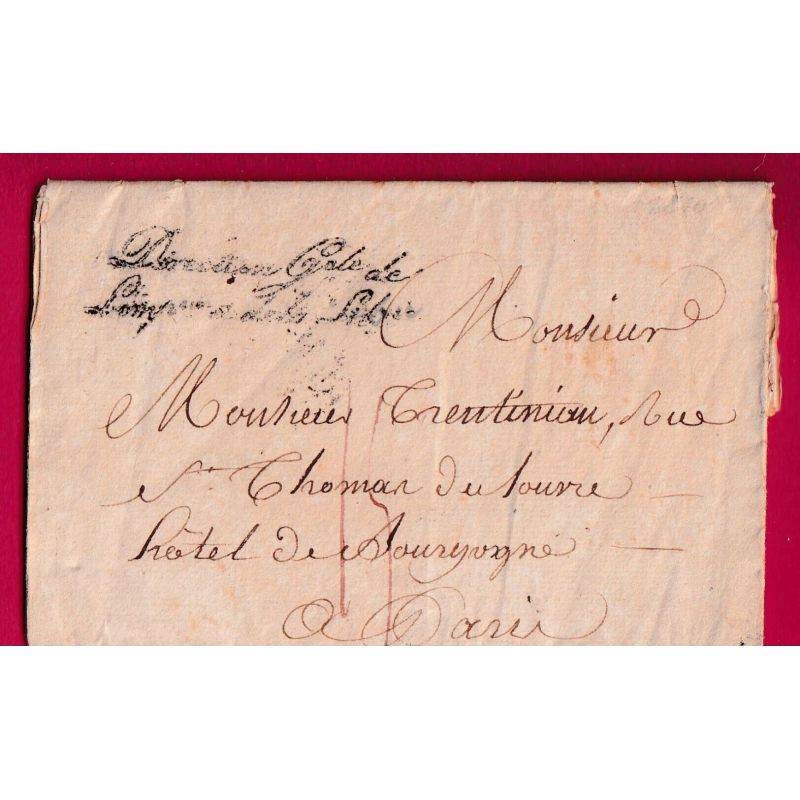 Direction Gale de
L'Imp
Monsieur
Monsieur Trentinian, rue
St. Thomas du Louvre
hôtel de Bourgogne
a Paris